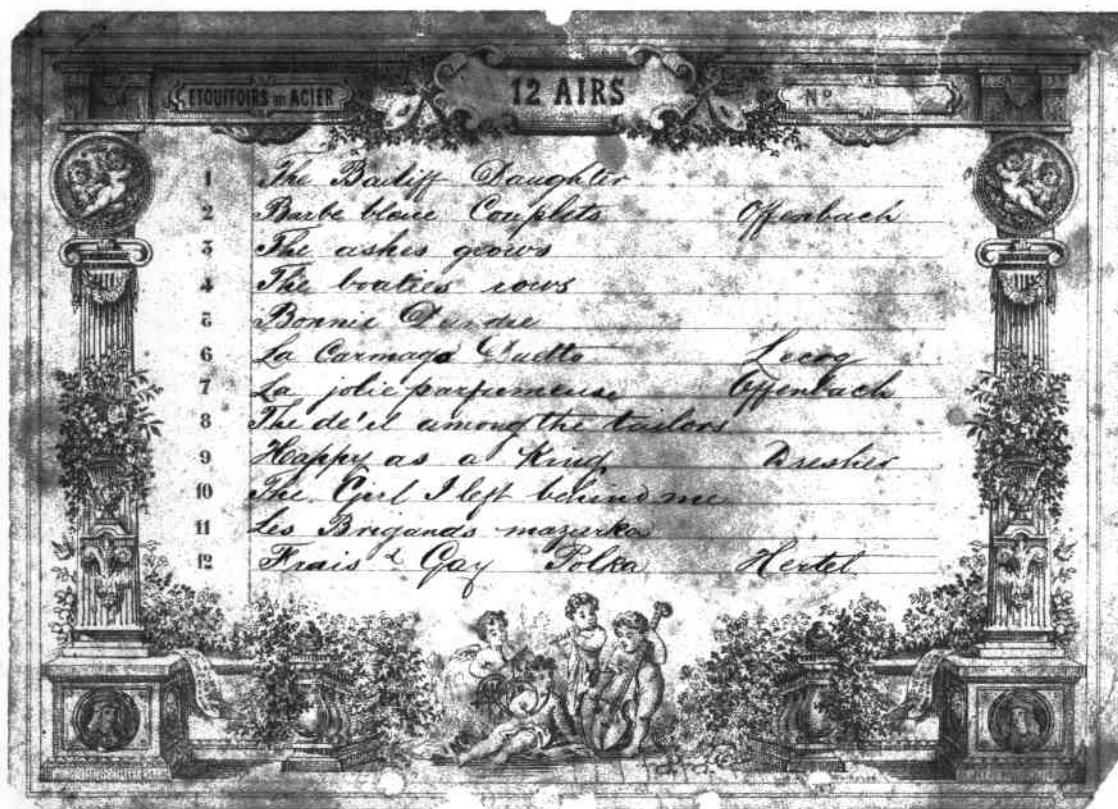 ETOUFFOIRS en ACIER
12 AIRS
Nº
1 The Bailiff Daughter
2 Barbe bleue Couplets Offenbach
3 The ashes grows
4 The boaties rows
5 Bonnie Dundee
6 La Carmago Duetto Lecoq
7 La jolie parfumeuse Offenbach
8 The de'il among the tailors
9 Happy as a King Dresher
10 The Girl I left behind me
11 Les Brigands mazurka
12 Frais & Gay Polka Hertel